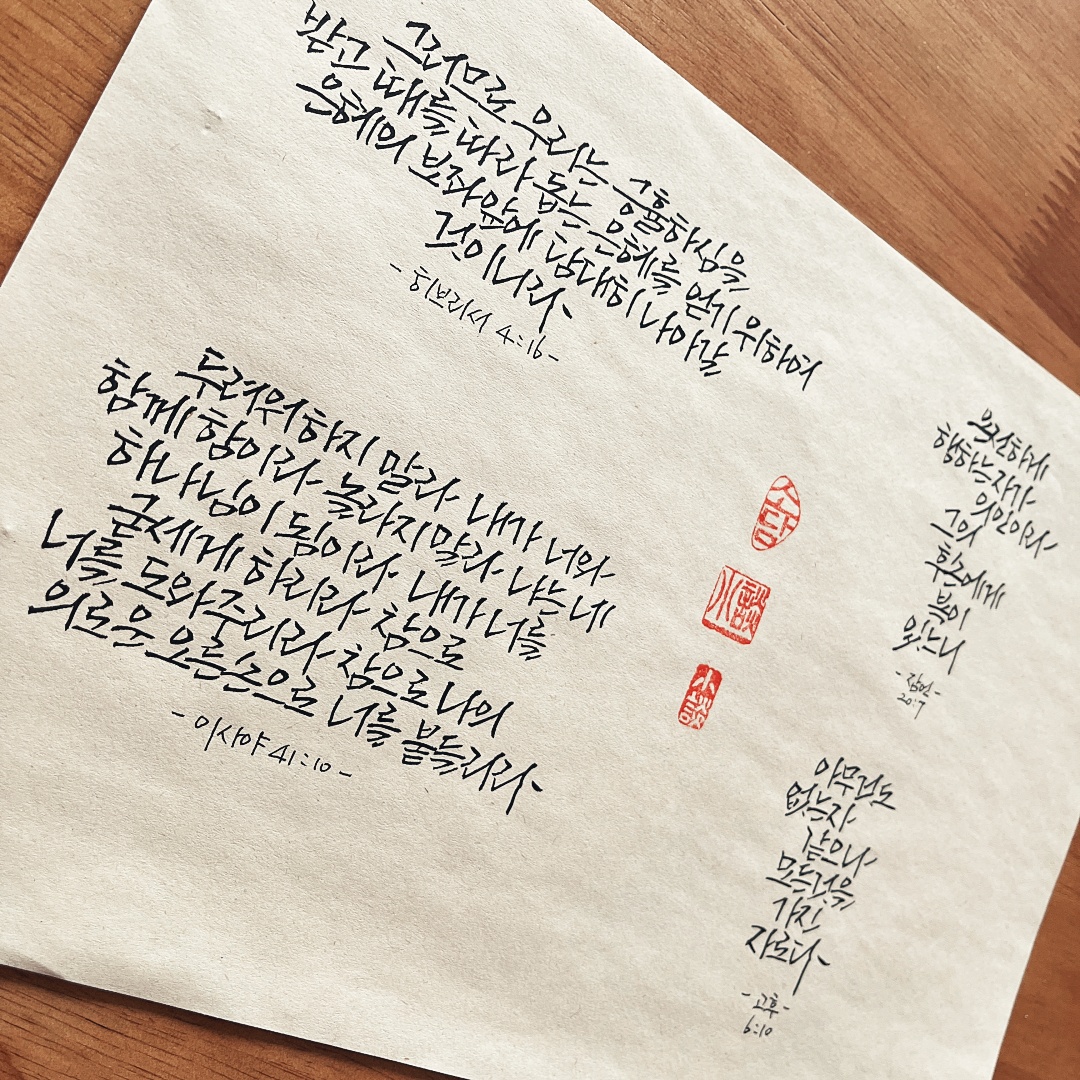 그러므로 우리는 긍휼하심을
받고 때를 따라 돕는 은혜를 얻기 위하여
은혜의 보좌앞에 담대히 나아갈
것이니라
- 히브리서 4:16 -
두려워하지 말라 내가 너와
함께 함이라 놀라지말라 나는 네
하나님이 됨이라 내가 너를
굳세게 하리라 참으로
너를 도와주리라 참으로 나의
의로운 오른손으로 너를 붙들리라
- 이사야 41:10 -
소담
小談
小談
온전하게
행하는자가
의인이라
그의
후손에게
복이
있느니
- 잠언 -
20:7
아무것도
없는자
같으나
모든것을
가진
자로다
- 고후 -
6:10